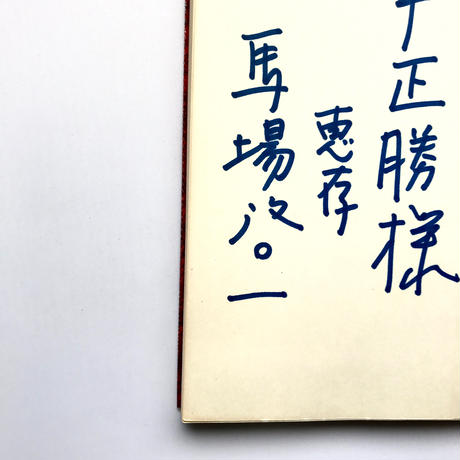 正勝様
恵存
馬場啓一